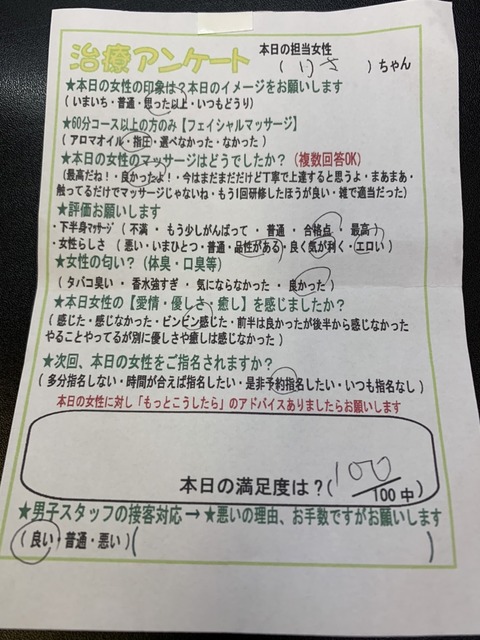 治療アンケート 本日の担当女性
( りさ )ちゃん
★本日の女性の印象は?本日のイメージをお願いします
(いまいち・普通・思った以上・いつもどうり)
★60分コース以上の方のみ【フェイシャルマッサージ】
(アロマオイル・指圧・選べなかった・なかった)
★本日の女性のマッサージはどうでしたか?(複数回答OK)
(最高だね!・良かったよ!・今はまだまだだけど丁寧で上達すると思うよ・まあまあ・
触ってるだけでマッサージじゃないね・もう1回研修したほうが良い・雑で適当だった)
★評価お願いします
・下半身マッサージ(不満・もう少しがんばって・普通・合格点・最高)
・女性らしさ(悪い・いまひとつ・普通・品性がある・良く気が利く・エロい)
★女性の匂い?(体臭・口臭等)
(タバコ臭い・香水強すぎ・気にならなかった・良かった)
★本日女性の【愛情・優しさ・癒し】を感じましたか?
(感じた・感じなかった・ビンビン感じた・前半は良かったが後半から感じなかった
やることやってるが別に優しさや癒しは感じなかった)
★次回、本日の女性をご指名されますか?
(多分指名しない・時間が合えば指名したい・是非予約指名したい・いつも指名なし)
本日の女性に対し「もっとこうしたら」のアドバイスありましたらお願いします
本日の満足度は?(100/100中)
★男子スタッフの接客対応→★悪いの理由、お手数ですがお願いします
(良い・普通・悪い)( )